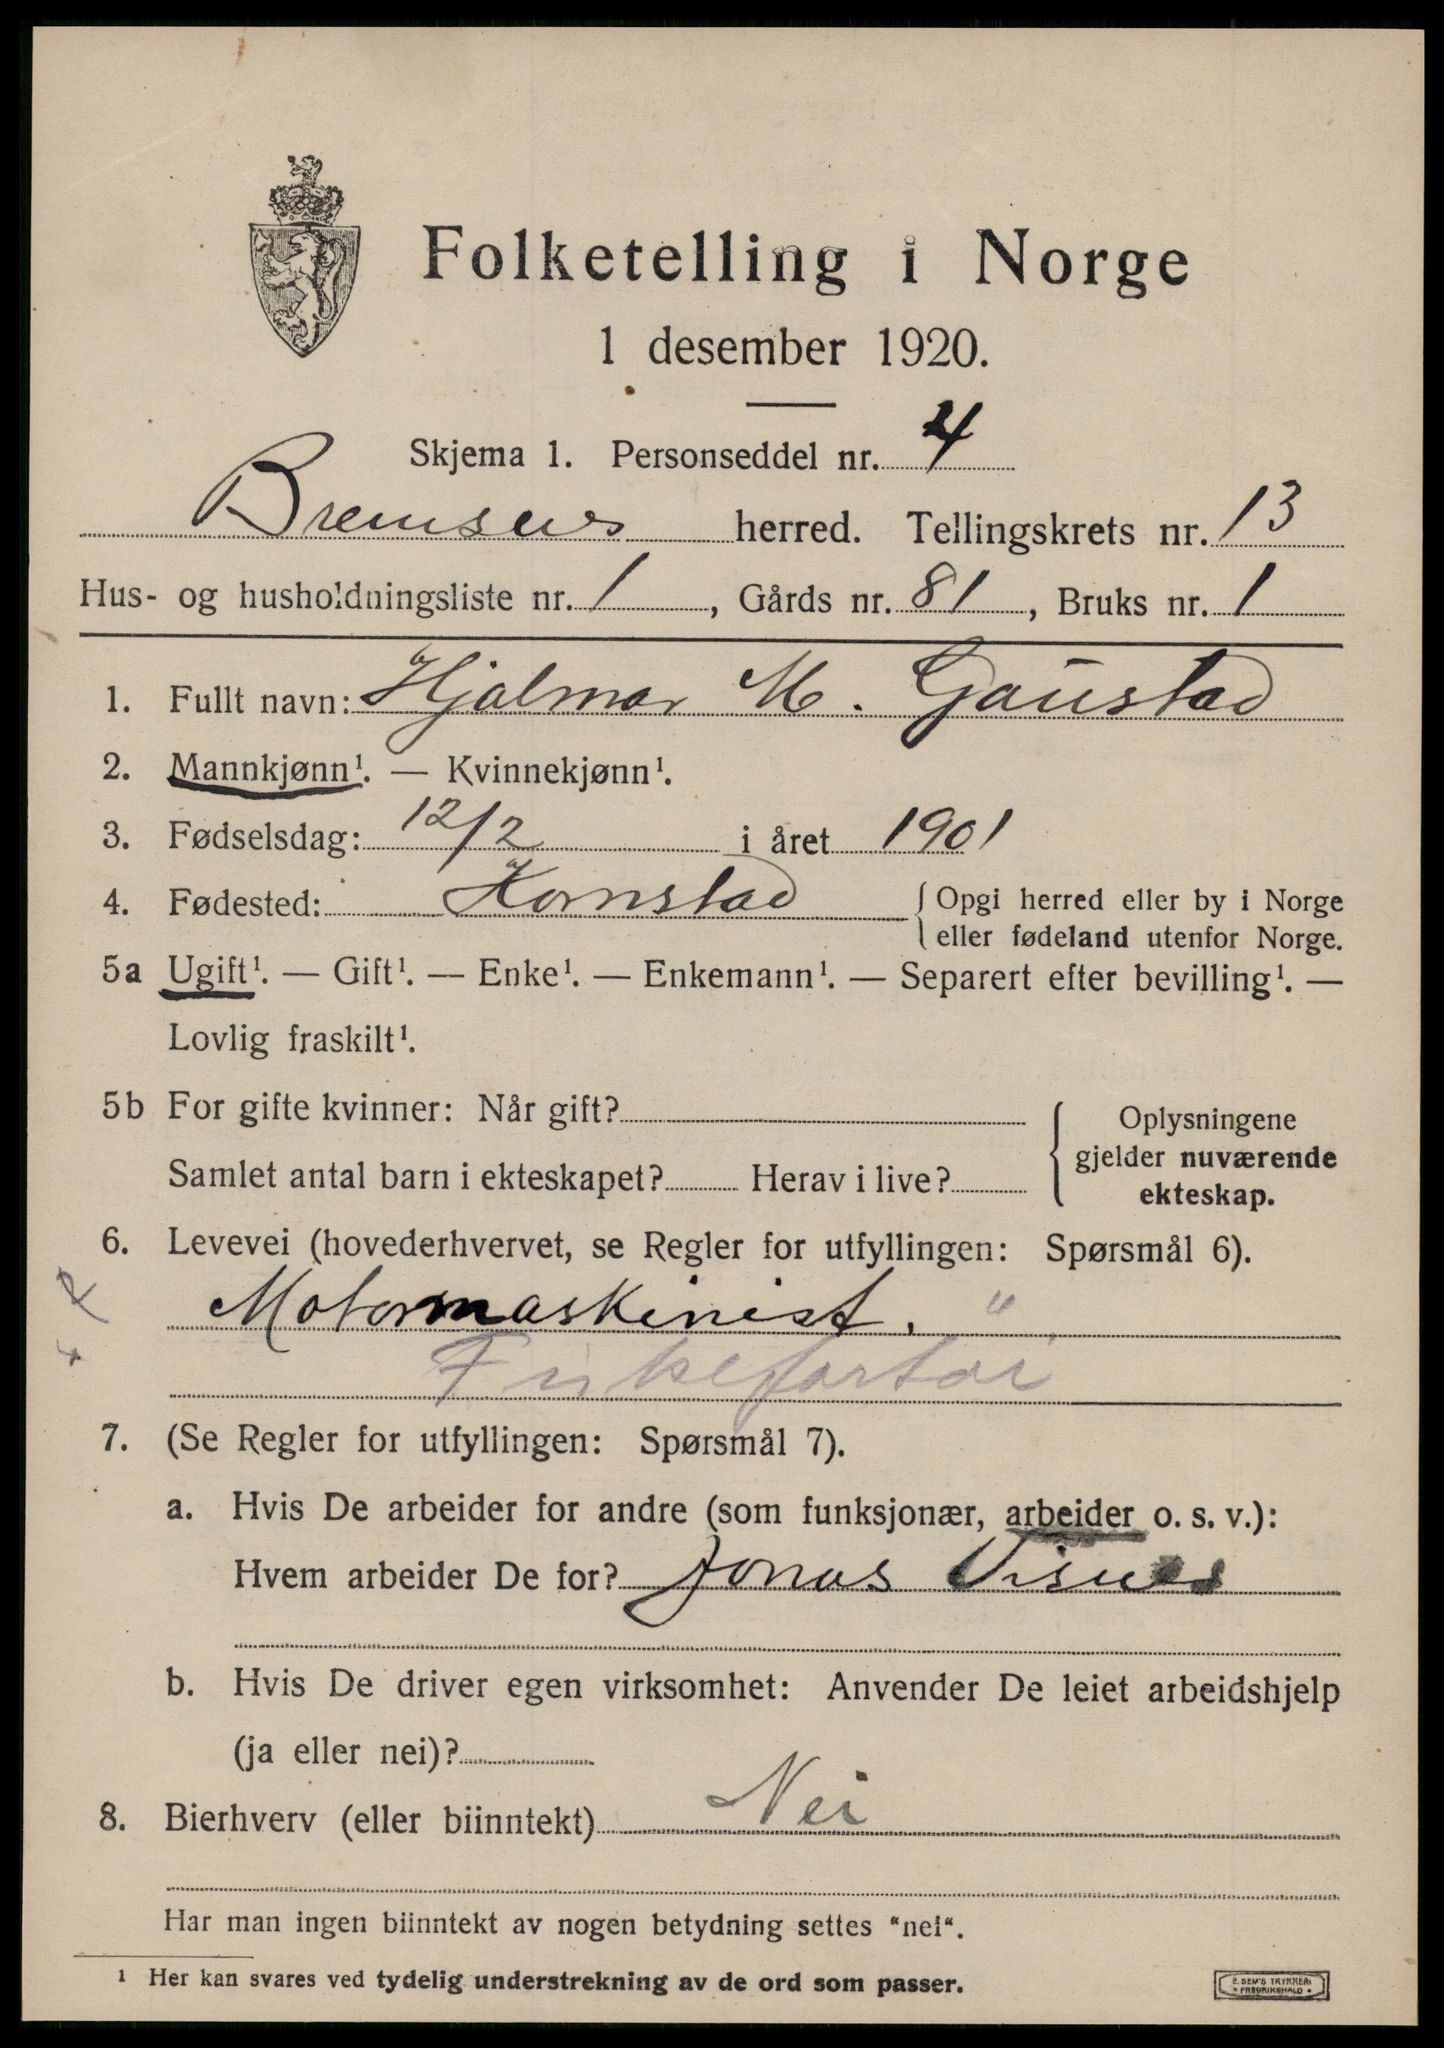 Folketelling i Norge
1 desember 1920.
Skjema 1. Personseddel nr. 4
Bremsnes herred. Tellingskrets nr. 13
Hus- og husholdningsliste nr. 1, Gårds nr. 81, Bruks nr. 1
1. Fullt navn: Hjalmar M. Gaustad
2. Mannkjønn¹. — Kvinnekjønn¹.
3. Fødselsdag: 12/2 i året 1901
4. Fødested: Kornstad { Opgi herred eller by i Norge
eller fødeland utenfor Norge.
5a Ugift¹. — Gift¹. — Enke¹. — Enkemann¹. — Separert efter bevilling¹. —
Lovlig fraskilt¹.
5b For gifte kvinner: Når gift?
Samlet antal barn i ekteskapet? Herav i live?
Oplysningene
gjelder nuværende
ekteskap.
6. Levevei (hovederhvervet, se Regler for utfyllingen: Spørsmål 6).
Motormaskinist. "
7. (Se Regler for utfyllingen: Spørsmål 7).
a. Hvis De arbeider for andre (som funksjonær, arbeider o. s. v.):
Hvem arbeider De for? Jonas Visnes
b. Hvis De driver egen virksomhet: Anvender De leiet arbeidshjelp
(ja eller nei)?
8. Bierhverv (eller biinntekt) Nei
Har man ingen biinntekt av nogen betydning settes "nei".
¹ Her kan svares ved tydelig understrekning av de ord som passer.
E. SEM'S TRYKKERI
* FREDRIKSHALD *